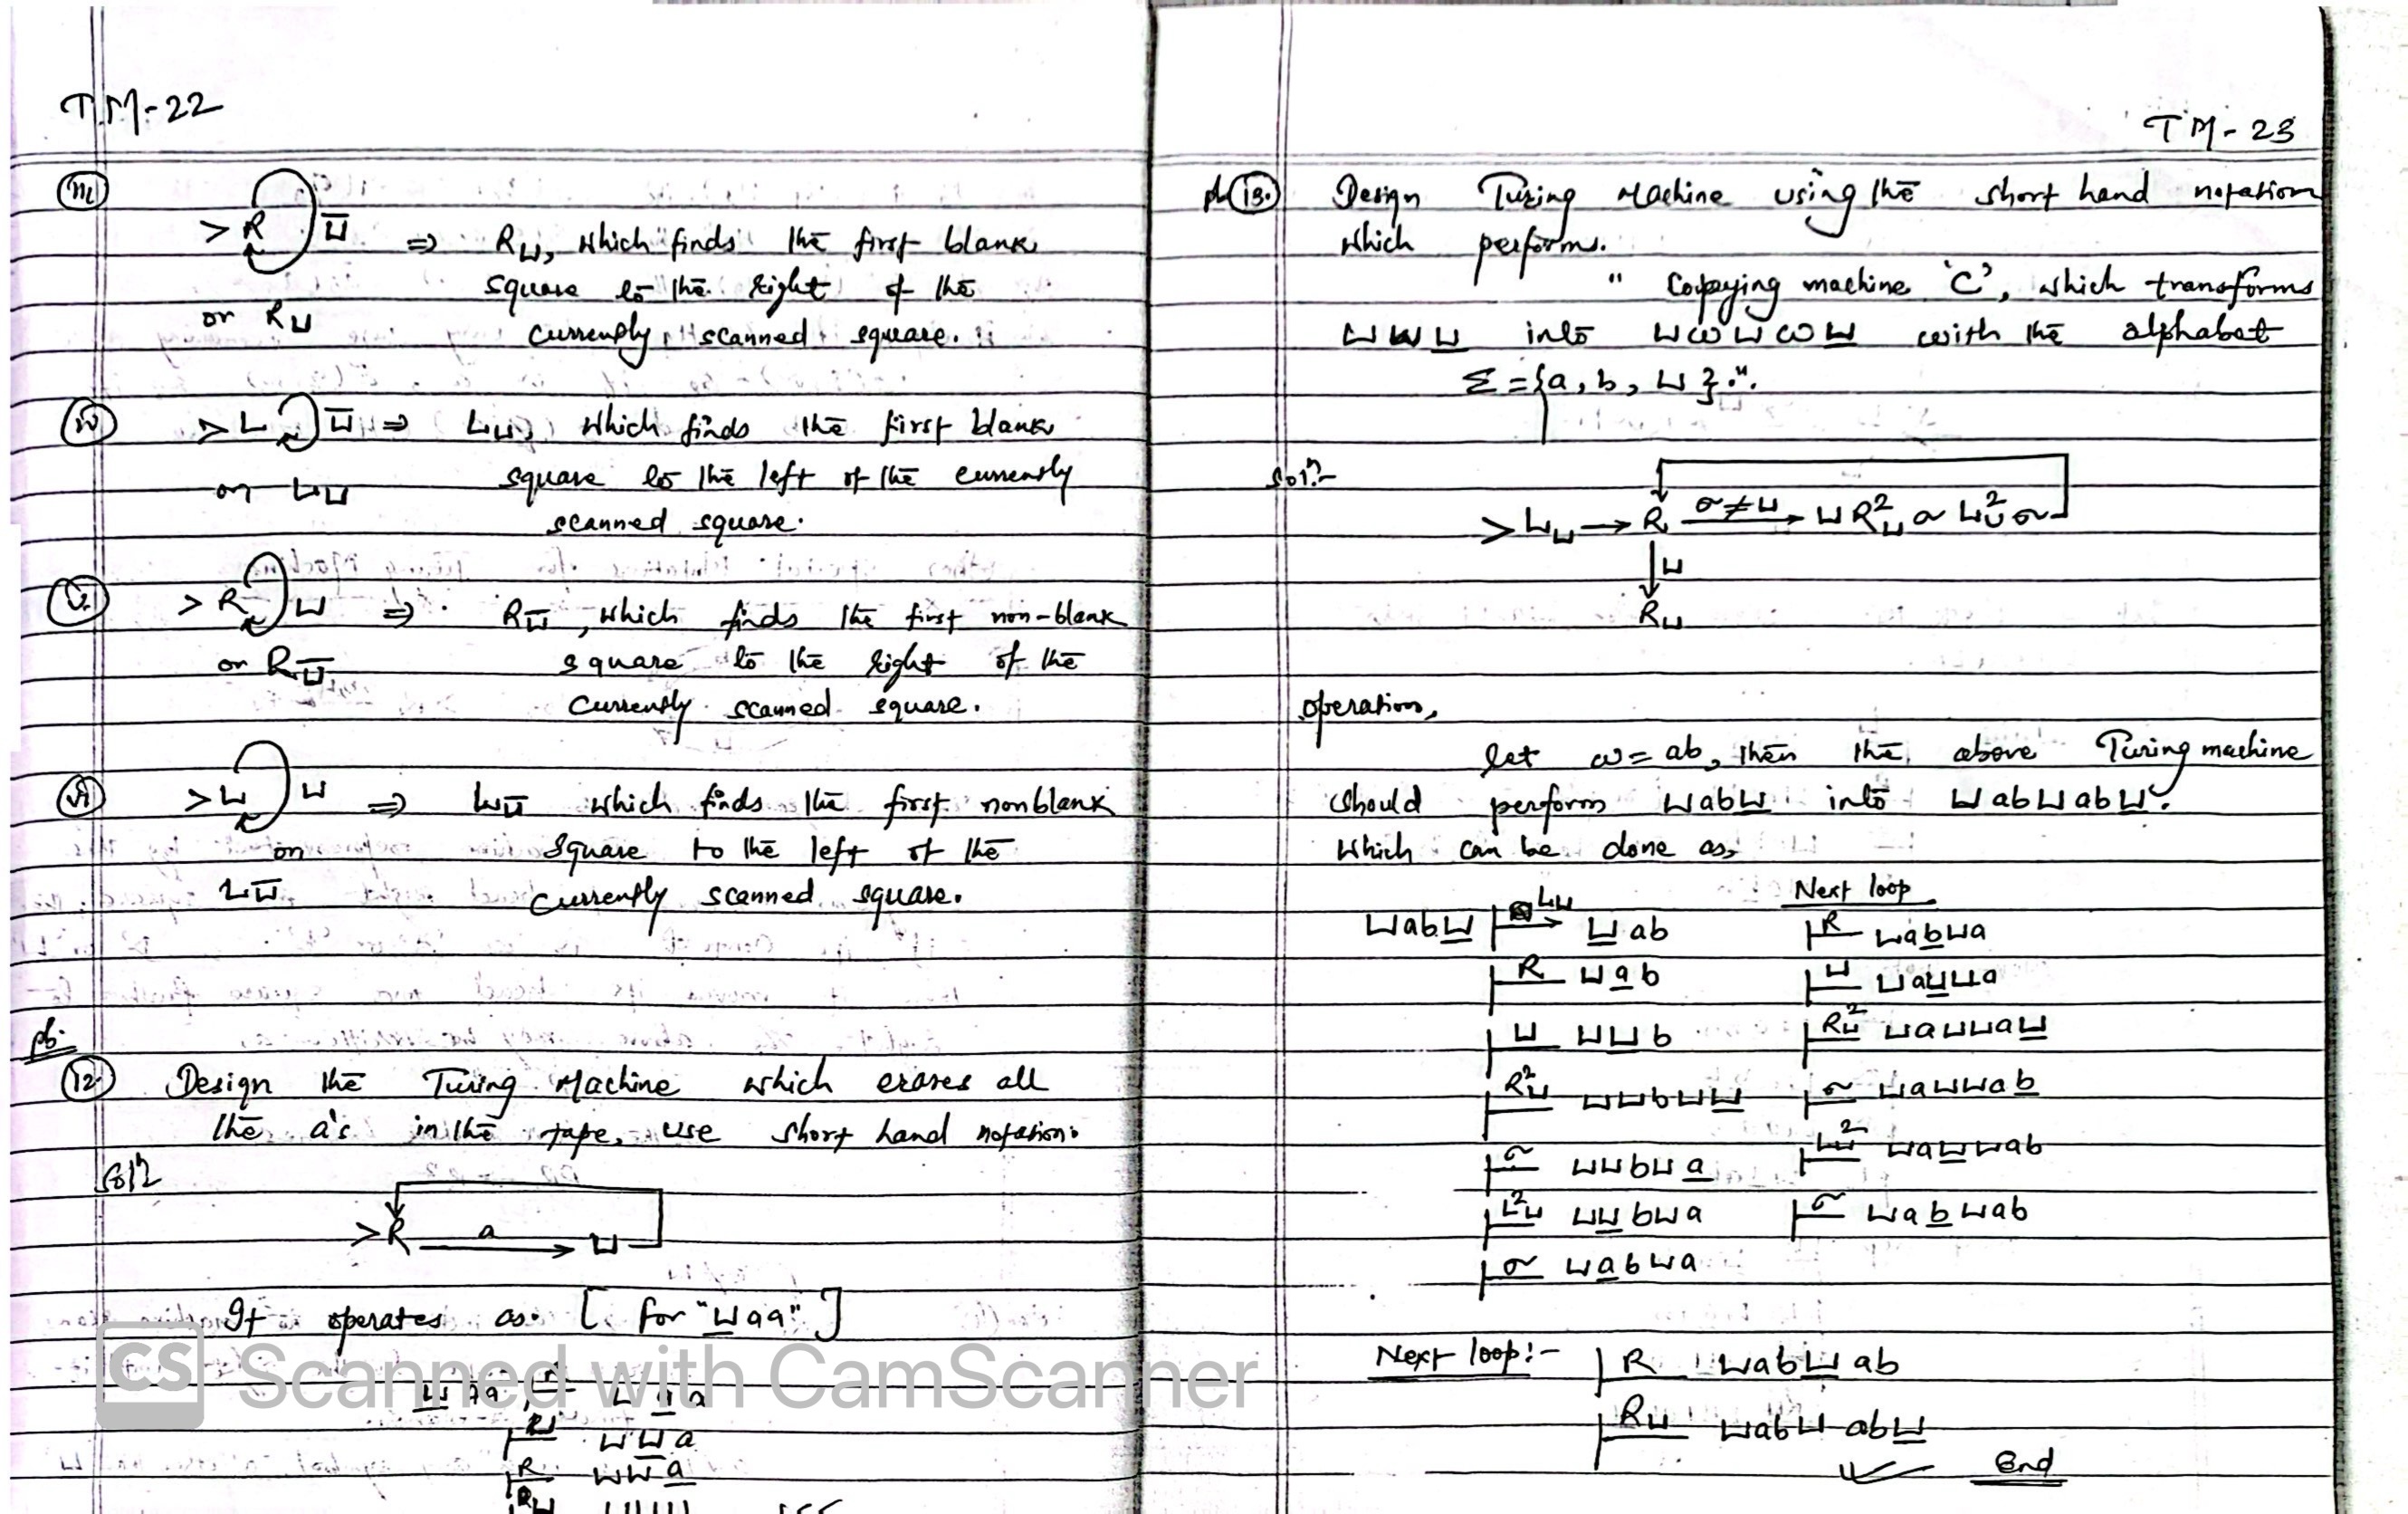 TM-22
(iii) >R ⊔̅ ⇒ R⊔, which finds the first blank
square to the right of the
or R⊔ currently scanned square.
(iv) >L ⊔̅ ⇒ L⊔, which finds the first blank
or L⊔ square to the left of the currently
scanned square.
(v) >R ⊔ ⇒ R⊔̅, which finds the first non-blank
or R⊔̅ square to the right of the
currently scanned square.
(vi) >L ⊔ ⇒ L⊔̅ which finds the first nonblank
or square to the left of the
L⊔̅ currently scanned square.
pb.
(12) Design the Turing Machine which erases all
the a's in the tape, use short hand notation.
Solⁿ
>R a → ⊔
It operates as. [ for "⊔aa" ]
⊔aa ⊢R ⊔aa
⊔⊔a
⊢R ⊔⊔a
CS Scanned with CamScanner
TM-23
pb (13.) Design Turing Machine using the short hand notation
which performs.
" Copying machine 'C', which transforms
⊔w⊔ into ⊔ω⊔ω⊔ with the alphabet
Σ = {a, b, ⊔}.".
Solⁿ:-
>L⊔ → R σ≠⊔ → ⊔ R²⊔ σ L²⊔ σ
↓⊔
R⊔
operation,
let ω = ab, then the above Turing machine
should perform ⊔ab⊔ into ⊔ab⊔ab⊔.
which can be done as,
Next loop
⊔ab⊔ ⊢L⊔ → ⊔ab
⊢R ⊔ab
⊢⊔ ⊔⊔b
⊢R²⊔ ⊔⊔b⊔⊔
⊢σ ⊔⊔b⊔a
⊢L²⊔ ⊔⊔b⊔a
⊢σ ⊔ab⊔a
⊢R ⊔ab⊔a
⊢⊔ ⊔a⊔⊔a
⊢R⊔² ⊔a⊔⊔a⊔
⊢σ ⊔a⊔⊔ab
⊢L⊔² ⊔a⊔⊔ab
⊢σ ⊔ab⊔ab
Next loop:- ⊢R ⊔ab⊔ab
⊢R⊔ ⊔ab⊔ab⊔
End